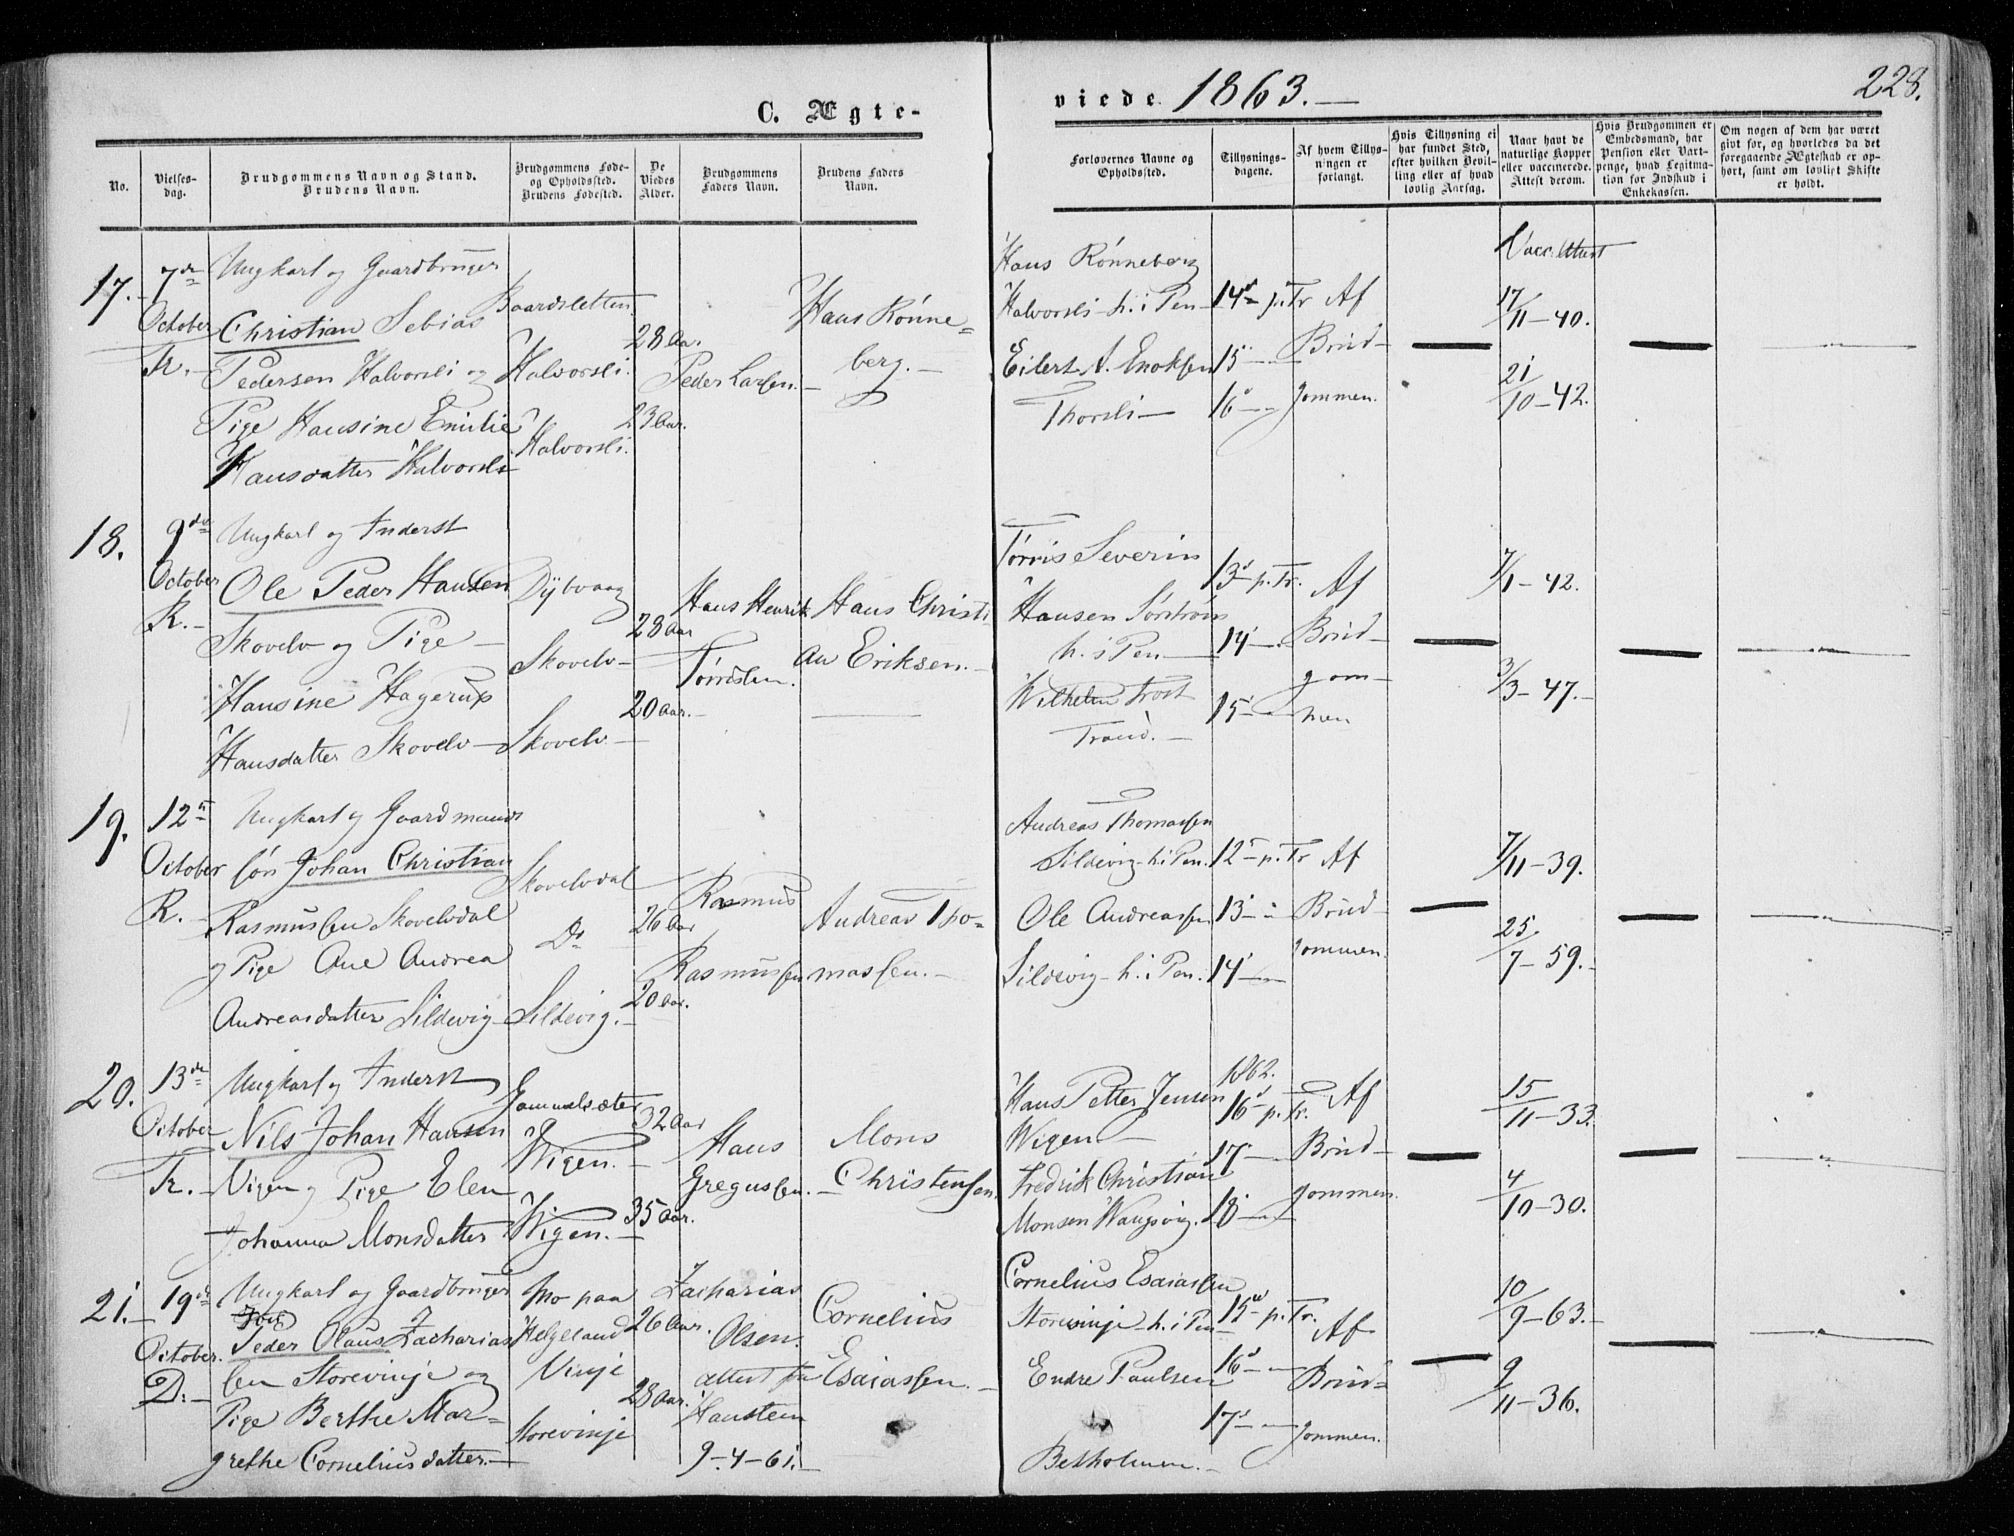 C. Ægte-
viede 1863.
228.
No.
Vielses-
dag.
Brudgommens Navn og Stand.
Brudens Navn.
Brudgommens Føde-
og Opholdssted.
Brudens Fødested.
De
Viedes
Alder.
Brudgommens
Faders Navn.
Brudens Faders
Navn.
Forlovernes Navne og
Opholdssted.
Tillysnings-
dagene.
Af hvem Tillys-
ningen er
forlangt.
Hvis Tillysning ei
har fundet Sted,
efter hvilken Bevil-
ling eller af hvad
lovlig Aarsag.
Naar havt de
naturlige Kopper
eller vaccinerede.
Attest derom.
Hvis Brudgommen er
Embedsmand, har
Pension eller Vart-
penge, hvad Legitima-
tion for Indskud i
Enkekassen.
Om nogen af dem har været
gift før, og hvorledes da det
foregaaende Ægteskab er op-
hørt, samt om lovligt Skifte
er holdt.
17.
7de
October
Tr.
Ungkarl og Gaardbruger
Christian Sebias
Pedersen Halvorsli og
Pige Hansine Emilie
Hansdatter Halvorsli
Baardsletten
Halvorsli.
Halvorsli.
28 Aar.
23 Aar.
Peder Larsen.
Hans Rønne=
berg.
Hans Rønneberg
Halvorsli h. i Pen
Eilert A. Enoksen
Thorsli
14de p. Tr
15
16
Af
Brud-
gommen.
Vacc. Attest
17/11-40.
21/10-42.
18.
9de
October
R.
Ungkarl og Inderst
Ole Peder Hansen
Skovelv og Pige
Hansine Hagerup
Hansdatter Skovelv
Dybvaag
Skovelv
Skovelv
28 Aar
20 Aar.
Hans Henrik
Tørrissen.
Hans Christi
an Eriksen.
Tørris Severin
Hansen Sørstrøm
h. i Pen
Wilhelm Frost
Traud.
13 p. Tr.
14
15
Af
Brud-
gom-
men
7/1-42.
3/3-47.
19.
12te
October
R.
Ungkarl og Gaardmands
søn Johan Christian
Rasmussen Skovelvdal
og Pige Ane Andrea
Andreasdatter Sildevig
Skovelvdal
Do
Sildevig.
26 Aar
20 Aar.
Rasmus
Rasmussen
Andreas Tho-
massen.
Andreas Thomassen
Sildevig h. i Pen.
Ole Andreassen
Sildevig h. i Pen.
12te p. Tr
13
14
Af
Brud-
gommen.
7/11-39.
25/7-59.
20.
13de
October
Tr.
Ungkarl og Inderst
Nils Johan Hansen
Vigen og Pige Elen
Johanna Monsdatter
Gammelsæter
Wigen.
Wigen.
32 Aar
35 Aar.
Hans
Gregussen.
Mons
Christensen
Hans Petter Jensen
Wigen
Fredrik Christian
Monsen Vangsvig.
1862.
16 p. Tr.
17
18
Af
Brud-
gommen.
15/11-33.
4/10-30.
21.
19de
October.
D.
Ungkarl og Gaardbruger
Peder Olaus Zacharias
sen Storevinje og
Pige Berthe Mar-
grethe Corneliusdatter.
Mo paa
Helgeland
Vinje
Storevinje
26 Aar.
28 Aar.
Zacharias
Olsen.
attest fra
Hanstein
9-4-61.
Cornelius
Esaiassen.
Cornelius Esaiassen
Storevinje h. i Pen
Endre Paulsen
Betholmen.
15de p. Tr.
16
17
Af
Brud=
gommen.
10/9-63.
9/11-36.